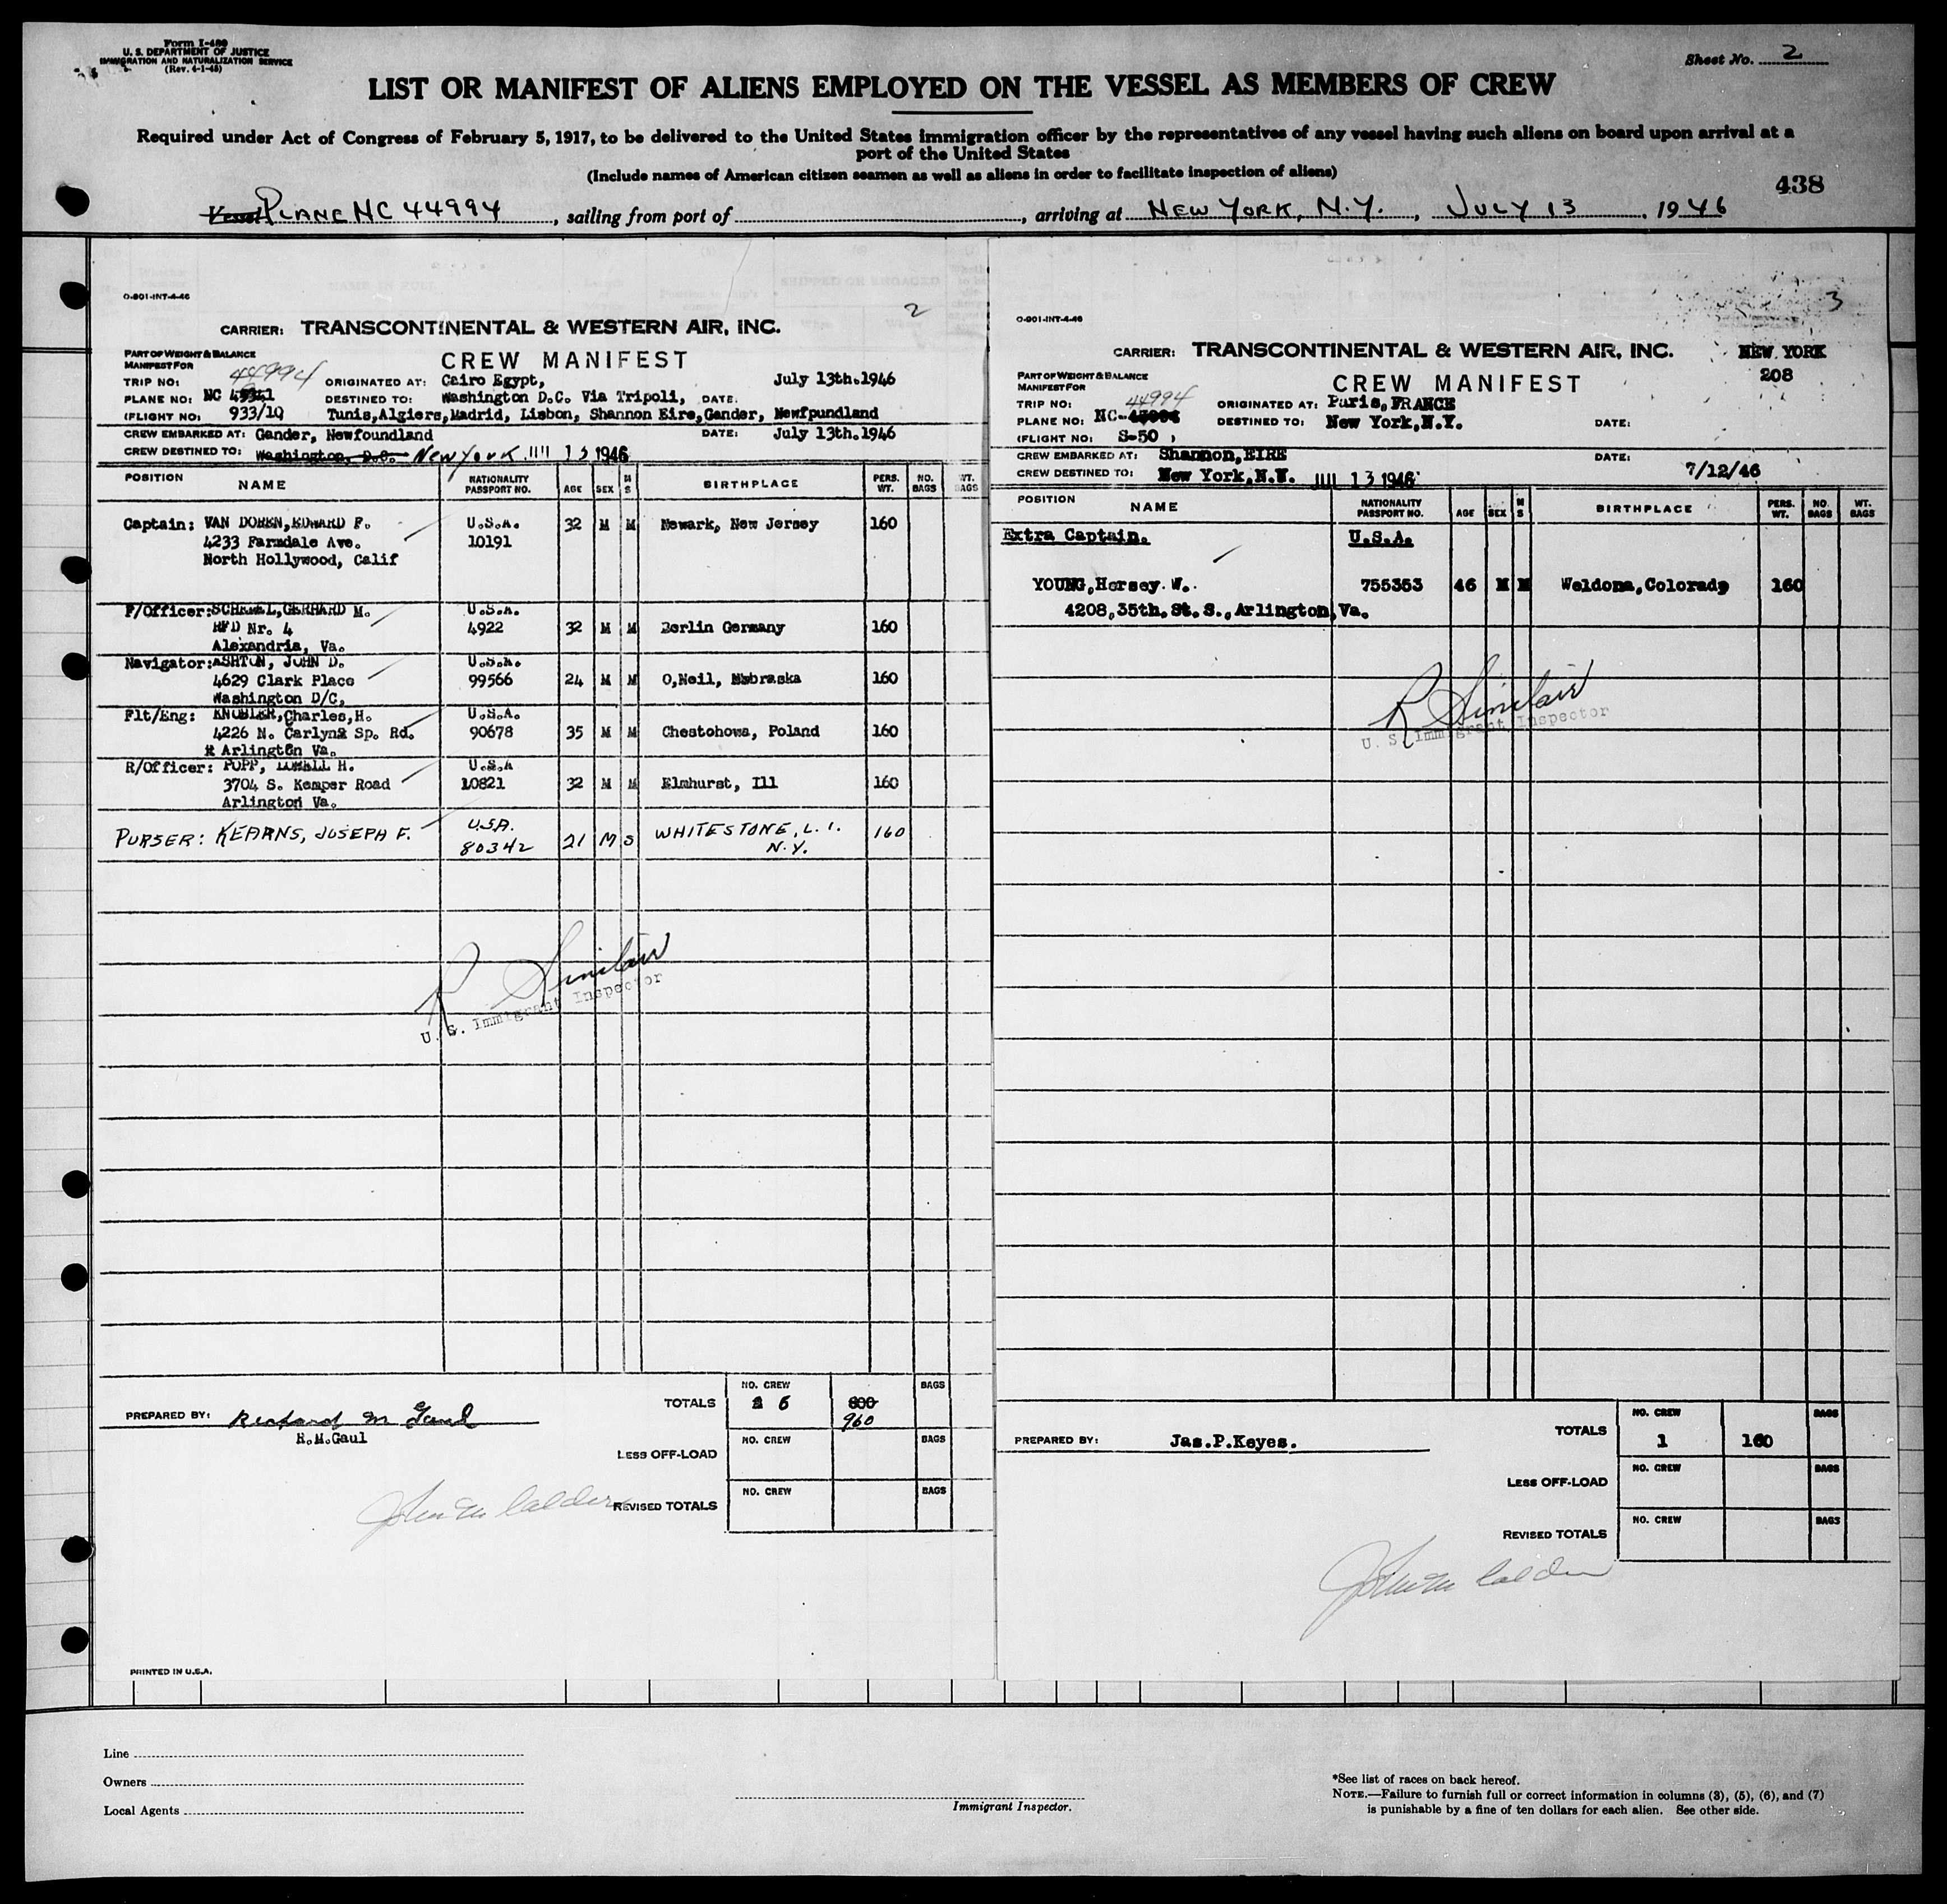 Form I-480
U. S. DEPARTMENT OF JUSTICE
IMMIGRATION AND NATURALIZATION SERVICE
(Rev. 4-1-45)
Sheet No. 2
LIST OR MANIFEST OF ALIENS EMPLOYED ON THE VESSEL AS MEMBERS OF CREW
Required under Act of Congress of February 5, 1917, to be delivered to the United States immigration officer by the representatives of any vessel having such aliens on board upon arrival at a
port of the United States
(Include names of American citizen seamen as well as aliens in order to facilitate inspection of aliens)
438
Vessel PLANE NC 44994, sailing from port of , arriving at NEW YORK, N.Y., JULY 13, 1946
O-901-INT-4-46
2
CARRIER: TRANSCONTINENTAL & WESTERN AIR, INC.
PART OF WEIGHT & BALANCE
MANIFEST FOR
CREW MANIFEST
44994
TRIP NO: ORIGINATED AT: Cairo Egypt, July 13th.1946
PLANE NO: NC DESTINED TO: Washington D.C. Via Tripoli, DATE:
(FLIGHT NO: 933/10 Tunis,Algiers,Madrid, Lisbon, Shannon Eire,Gander, Newfpundland
CREW EMBARKED AT: Gander, Newfoundland DATE: July 13th.1946
CREW DESTINED TO: Washington, D.C. NEW YORK JUL 13 1946
POSITION NAME NATIONALITY PASSPORT NO. AGE SEX M S BIRTHPLACE PERS. WT. NO. BAGS WT. BAGS
Captain: VAN DOREN,EDWARD F. U.S.A. 32 M M Newark, New Jersey 160
4233 Farmdale Ave. 10191
North Hollywood, Calif
F/Officer: GERHARD M. U.S.A.
RFD Nr. 4 4922 32 M M Berlin Germany 160
Alexandria, Va.
Navigator:ASHTON, JOHN D. U.S.A.
4629 Clark Place 99566 24 M M O,Neil, Nebraska 160
Washington D/C,
Flt/Eng: KNOBLER,Charles,H. U.S.A.
4226 N. Carlyn Sp. Rd. 90678 35 M M Chestohowa, Poland 160
Arlington Va.
R/Officer: POPP, LOWELL H. U.S.A
3704 S. Kemper Road 10821 32 M M Elmhurst, Ill 160
Arlington Va.
PURSER: KEARNS, JOSEPH F. U.S.A. 80342 21 M S WHITESTONE, L.I. N.Y. 160
R Sinclair
U. S. Immigrant Inspector
PREPARED BY: Richard M Gaul
R.M.Gaul
TOTALS NO. CREW 6 800 960 BAGS
LESS OFF-LOAD NO. CREW BAGS
REVISED TOTALS NO. CREW BAGS
John M Calder
PRINTED IN U.S.A.
O-901-INT-4-46
3
CARRIER: TRANSCONTINENTAL & WESTERN AIR, INC. NEW YORK
208
PART OF WEIGHT & BALANCE
MANIFEST FOR
CREW MANIFEST
44994
TRIP NO: ORIGINATED AT: Paris,FRANCE
PLANE NO: NC- DESTINED TO: New York,N.Y. DATE:
(FLIGHT NO: S-50 )
CREW EMBARKED AT: Shannon,EIRE DATE: 7/12/46
CREW DESTINED TO: New York,N.Y. JUL 13 1946
POSITION NAME NATIONALITY PASSPORT NO. AGE SEX M S BIRTHPLACE PERS. WT. NO. BAGS WT. BAGS
Extra Captain. U.S.A.
YOUNG,Hersey W. 755353 46 M M Weldona,Colorado 160
4208,35th.St.S.,Arlington,Va.
R Sinclair
U. S. Immigrant Inspector
PREPARED BY: Jas.P.Keyes.
TOTALS NO. CREW 1 160 BAGS
LESS OFF-LOAD NO. CREW BAGS
REVISED TOTALS NO. CREW BAGS
John M Calder
Line
Owners
Local Agents
Immigrant Inspector.
*See list of races on back hereof.
NOTE.—Failure to furnish full or correct information in columns (3), (5), (6), and (7)
is punishable by a fine of ten dollars for each alien. See other side.